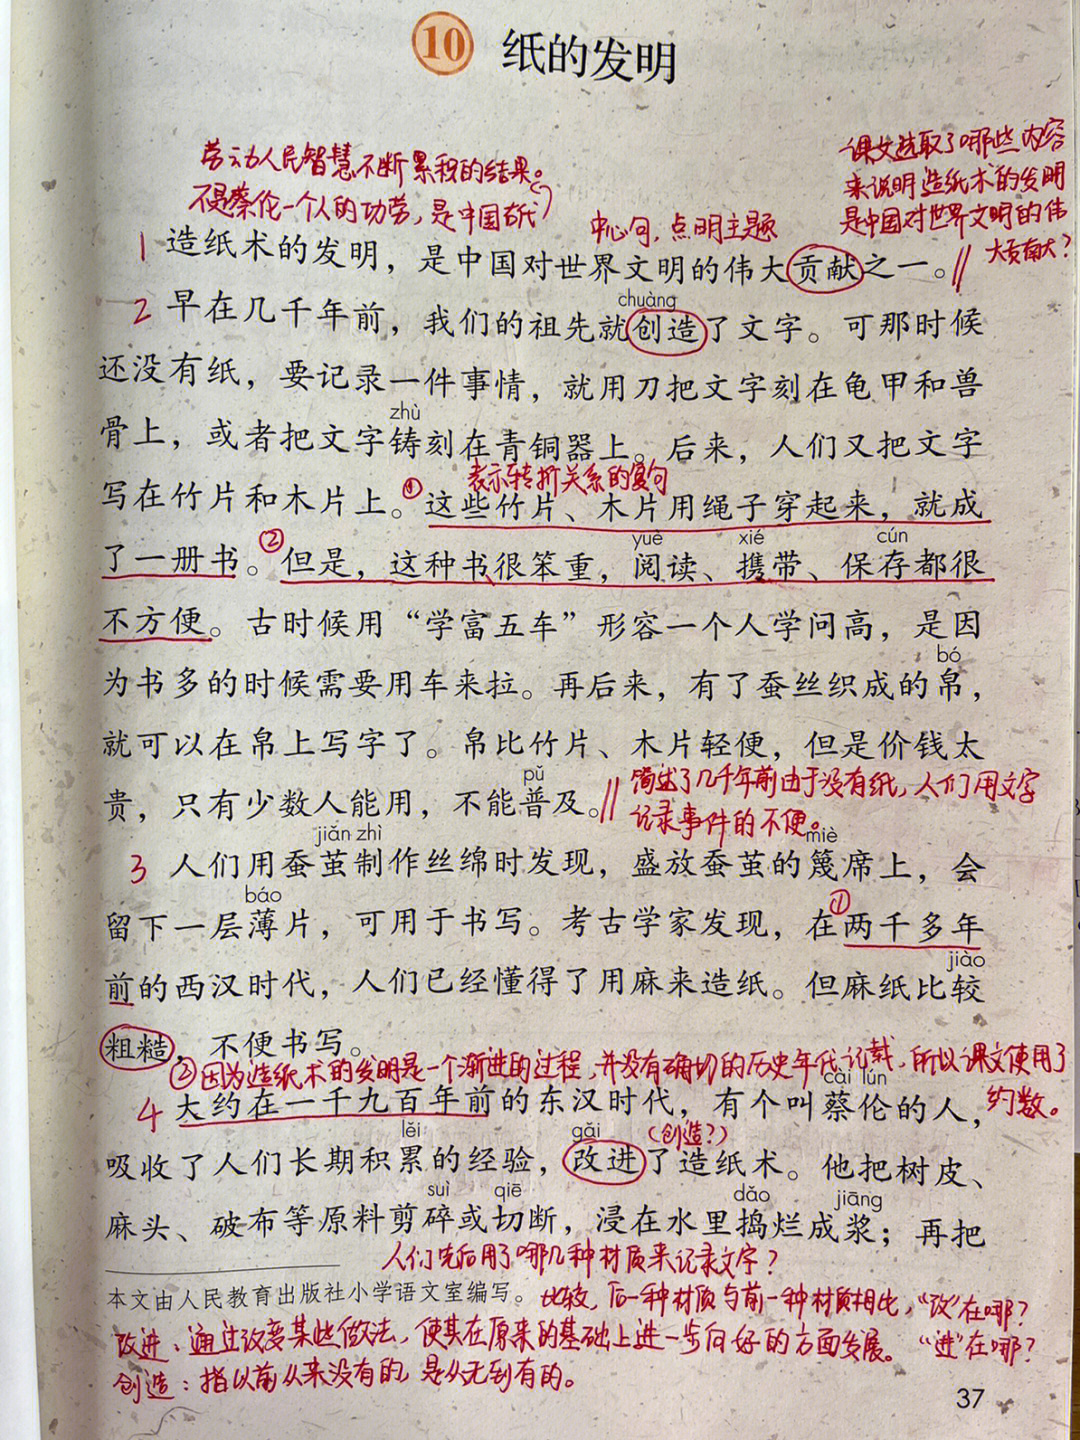 10 纸的发明
劳动人民智慧不断累积的结果。
不是蔡伦一个人的功劳，是中国古代
课文选取了哪些内容
来说明造纸术的发明
是中国对世界文明的伟
大贡献？
中心句，点明主题
1 造纸术的发明，是中国对世界文明的伟大贡献之一。
chuàng
2 早在几千年前，我们的祖先就创造了文字。可那时候
还没有纸，要记录一件事情，就用刀把文字刻在龟甲和兽
zhù
骨上，或者把文字铸刻在青铜器上。后来，人们又把文字
表示转折关系的复句
写在竹片和木片上。①这些竹片、木片用绳子穿起来，就成
yuè xié cún
了一册书。②但是，这种书很笨重，阅读、携带、保存都很
不方便。古时候用“学富五车”形容一个人学问高，是因
bó
为书多的时候需要用车来拉。再后来，有了蚕丝织成的帛，
就可以在帛上写字了。帛比竹片、木片轻便，但是价钱太
pǔ
贵，只有少数人能用，不能普及。
简述了几千年前由于没有纸，人们用文字
记录事件的不便。
jiǎn zhì miè
3 人们用蚕茧制作丝绵时发现，盛放蚕茧的篾席上，会
báo
留下一层薄片，可用于书写。考古学家发现，在①两千多年
jiào
前的西汉时代，人们已经懂得了用麻来造纸。但麻纸比较
粗糙，不便书写。
②因为造纸术的发明是一个渐进的过程，并没有确切的历史年代记载，所以课文使用了
约数。
cài lún
4 大约在一千九百年前的东汉时代，有个叫蔡伦的人，
lěi gǎi （创造？）
吸收了人们长期积累的经验，改进了造纸术。他把树皮、
suì qiē dǎo jiāng
麻头、破布等原料剪碎或切断，浸在水里捣烂成浆；再把
人们先后用了哪几种材质来记录文字？
本文由人民教育出版社小学语文室编写。
比较，后一种材质与前一种材质相比，“改”在哪？
“进”在哪？
改进：通过改变某些做法，使其在原来的基础上进一步向好的方面发展。
创造：指以前从来没有的，是从无到有的。
37